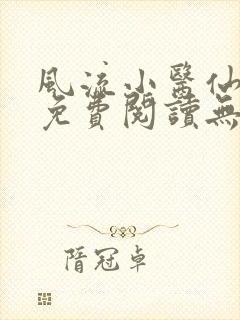 風流小醫仙
免費閱讀無
隋冠卓